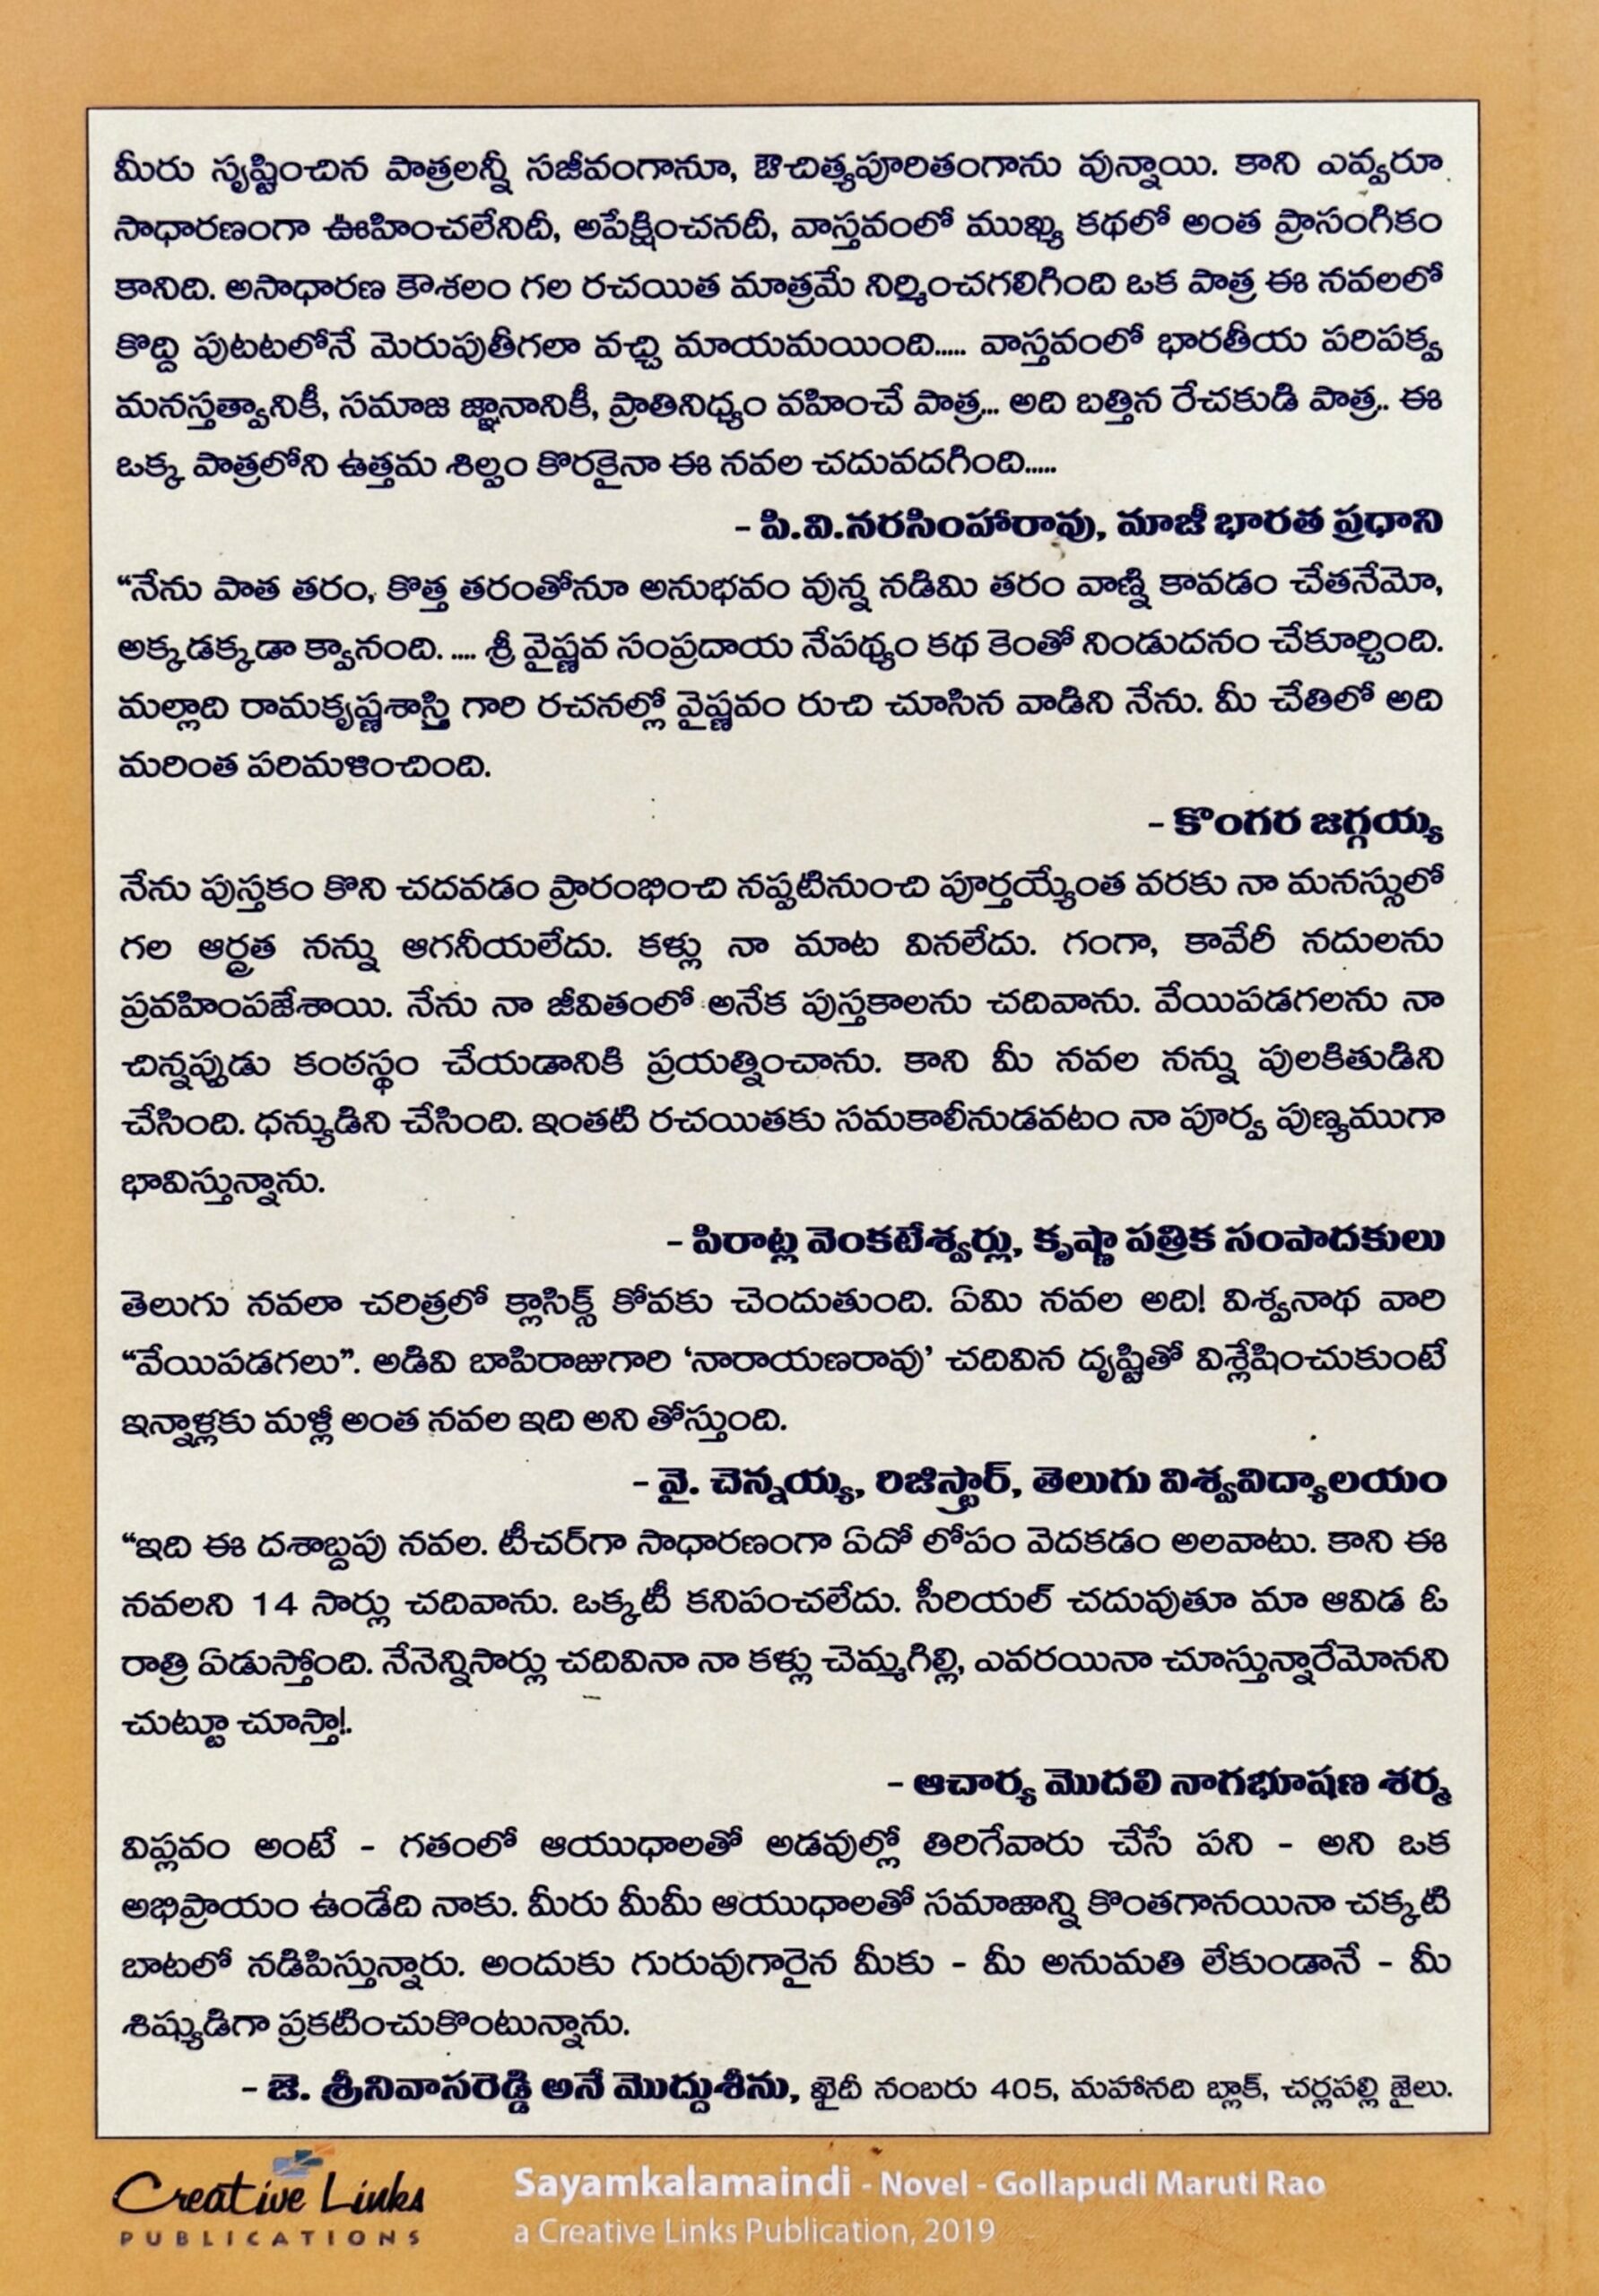 మీరు సృష్టించిన పాత్రలన్నీ సజీవంగానూ, ఔచిత్యపూరితంగాను వున్నాయి. కాని ఎవ్వరూ
సాధారణంగా ఊహించలేనిదీ, అపేక్షించనదీ, వాస్తవంలో ముఖ్య కథలో అంత ప్రాసంగికం
కానిది. అసాధారణ కౌశలం గల రచయిత మాత్రమే నిర్మించగలిగింది ఒక పాత్ర ఈ నవలలో
కొద్ది పుటటలోనే మెరుపుతీగలా వచ్చి మాయమయింది..... వాస్తవంలో భారతీయ పరిపక్వ
మనస్తత్వానికీ, సమాజ జ్ఞానానికీ, ప్రాతినిధ్యం వహించే పాత్ర... అది బత్తిన రేచకుడి పాత్ర.. ఈ
ఒక్క పాత్రలోని ఉత్తమ శిల్పం కొరకైనా ఈ నవల చదువదగింది.....
- పి.వి.నరసింహారావు, మాజీ భారత ప్రధాని
“నేను పాత తరం, కొత్త తరంతోనూ అనుభవం వున్న నడిమి తరం వాణ్ని కావడం చేతనేమో,
అక్కడక్కడా క్వానంది. .... శ్రీ వైష్ణవ సంప్రదాయ నేపథ్యం కథ కెంతో నిండుదనం చేకూర్చింది.
మల్లాది రామకృష్ణశాస్త్రి గారి రచనల్లో వైష్ణవం రుచి చూసిన వాడిని నేను. మీ చేతిలో అది
మరింత పరిమళించింది.
- కొంగర జగ్గయ్య
నేను పుస్తకం కొని చదవడం ప్రారంభించి నప్పటినుంచి పూర్తయ్యేంత వరకు నా మనస్సులో
గల ఆర్ద్రత నన్ను ఆగనీయలేదు. కళ్లు నా మాట వినలేదు. గంగా, కావేరీ నదులను
ప్రవహింపజేశాయి. నేను నా జీవితంలో అనేక పుస్తకాలను చదివాను. వేయిపడగలను నా
చిన్నప్పుడు కంఠస్థం చేయడానికి ప్రయత్నించాను. కాని మీ నవల నన్ను పులకితుడిని
చేసింది. ధన్యుడిని చేసింది. ఇంతటి రచయితకు సమకాలీనుడవటం నా పూర్వ పుణ్యముగా
భావిస్తున్నాను.
- పిరాట్ల వెంకటేశ్వర్లు, కృష్ణా పత్రిక సంపాదకులు
తెలుగు నవలా చరిత్రలో క్లాసిక్స్ కోవకు చెందుతుంది. ఏమి నవల అది! విశ్వనాథ వారి
“వేయిపడగలు”. అడివి బాపిరాజుగారి ‘నారాయణరావు’ చదివిన దృష్టితో విశ్లేషించుకుంటే
ఇన్నాళ్లకు మళ్లీ అంత నవల ఇది అని తోస్తుంది.
- వై. చెన్నయ్య, రిజిస్ట్రార్, తెలుగు విశ్వవిద్యాలయం
“ఇది ఈ దశాబ్దపు నవల. టీచర్‌గా సాధారణంగా ఏదో లోపం వెదకడం అలవాటు. కాని ఈ
నవలని 14 సార్లు చదివాను. ఒక్కటీ కనిపంచలేదు. సీరియల్ చదువుతూ మా ఆవిడ ఓ
రాత్రి ఏడుస్తోంది. నేనెన్నిసార్లు చదివినా నా కళ్లు చెమ్మగిల్లి, ఎవరయినా చూస్తున్నారేమోనని
చుట్టూ చూస్తా!.
- ఆచార్య మొదలి నాగభూషణ శర్మ
విప్లవం అంటే - గతంలో ఆయుధాలతో అడవుల్లో తిరిగేవారు చేసే పని - అని ఒక
అభిప్రాయం ఉండేది నాకు. మీరు మీమీ ఆయుధాలతో సమాజాన్ని కొంతగానయినా చక్కటి
బాటలో నడిపిస్తున్నారు. అందుకు గురువుగారైన మీకు - మీ అనుమతి లేకుండానే - మీ
శిష్యుడిగా ప్రకటించుకొంటున్నాను.
- జె. శ్రీనివాసరెడ్డి అనే మొద్దుశీను, ఖైదీ నంబరు 405, మహానది బ్లాక్, చర్లపల్లి జైలు.
Creative Links
PUBLICATIONS
Sayamkalamaindi - Novel - Gollapudi Maruti Rao
a Creative Links Publication, 2019